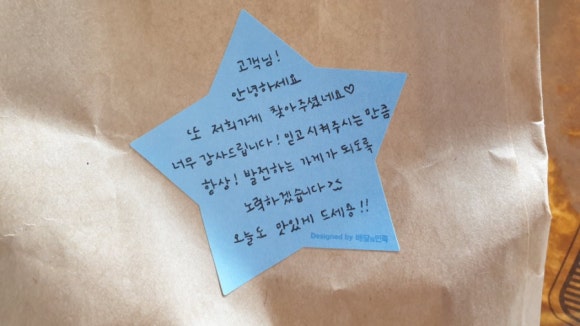 고객님!
안녕하세요
또 저희가게 찾아주셨네요♡
너무 감사드립니다! 믿고 시켜주시는 만큼
항상! 발전하는 가게가 되도록
노력하겠습니다>.<
오늘도 맛있게 드세용!!
Designed By 배달의민족